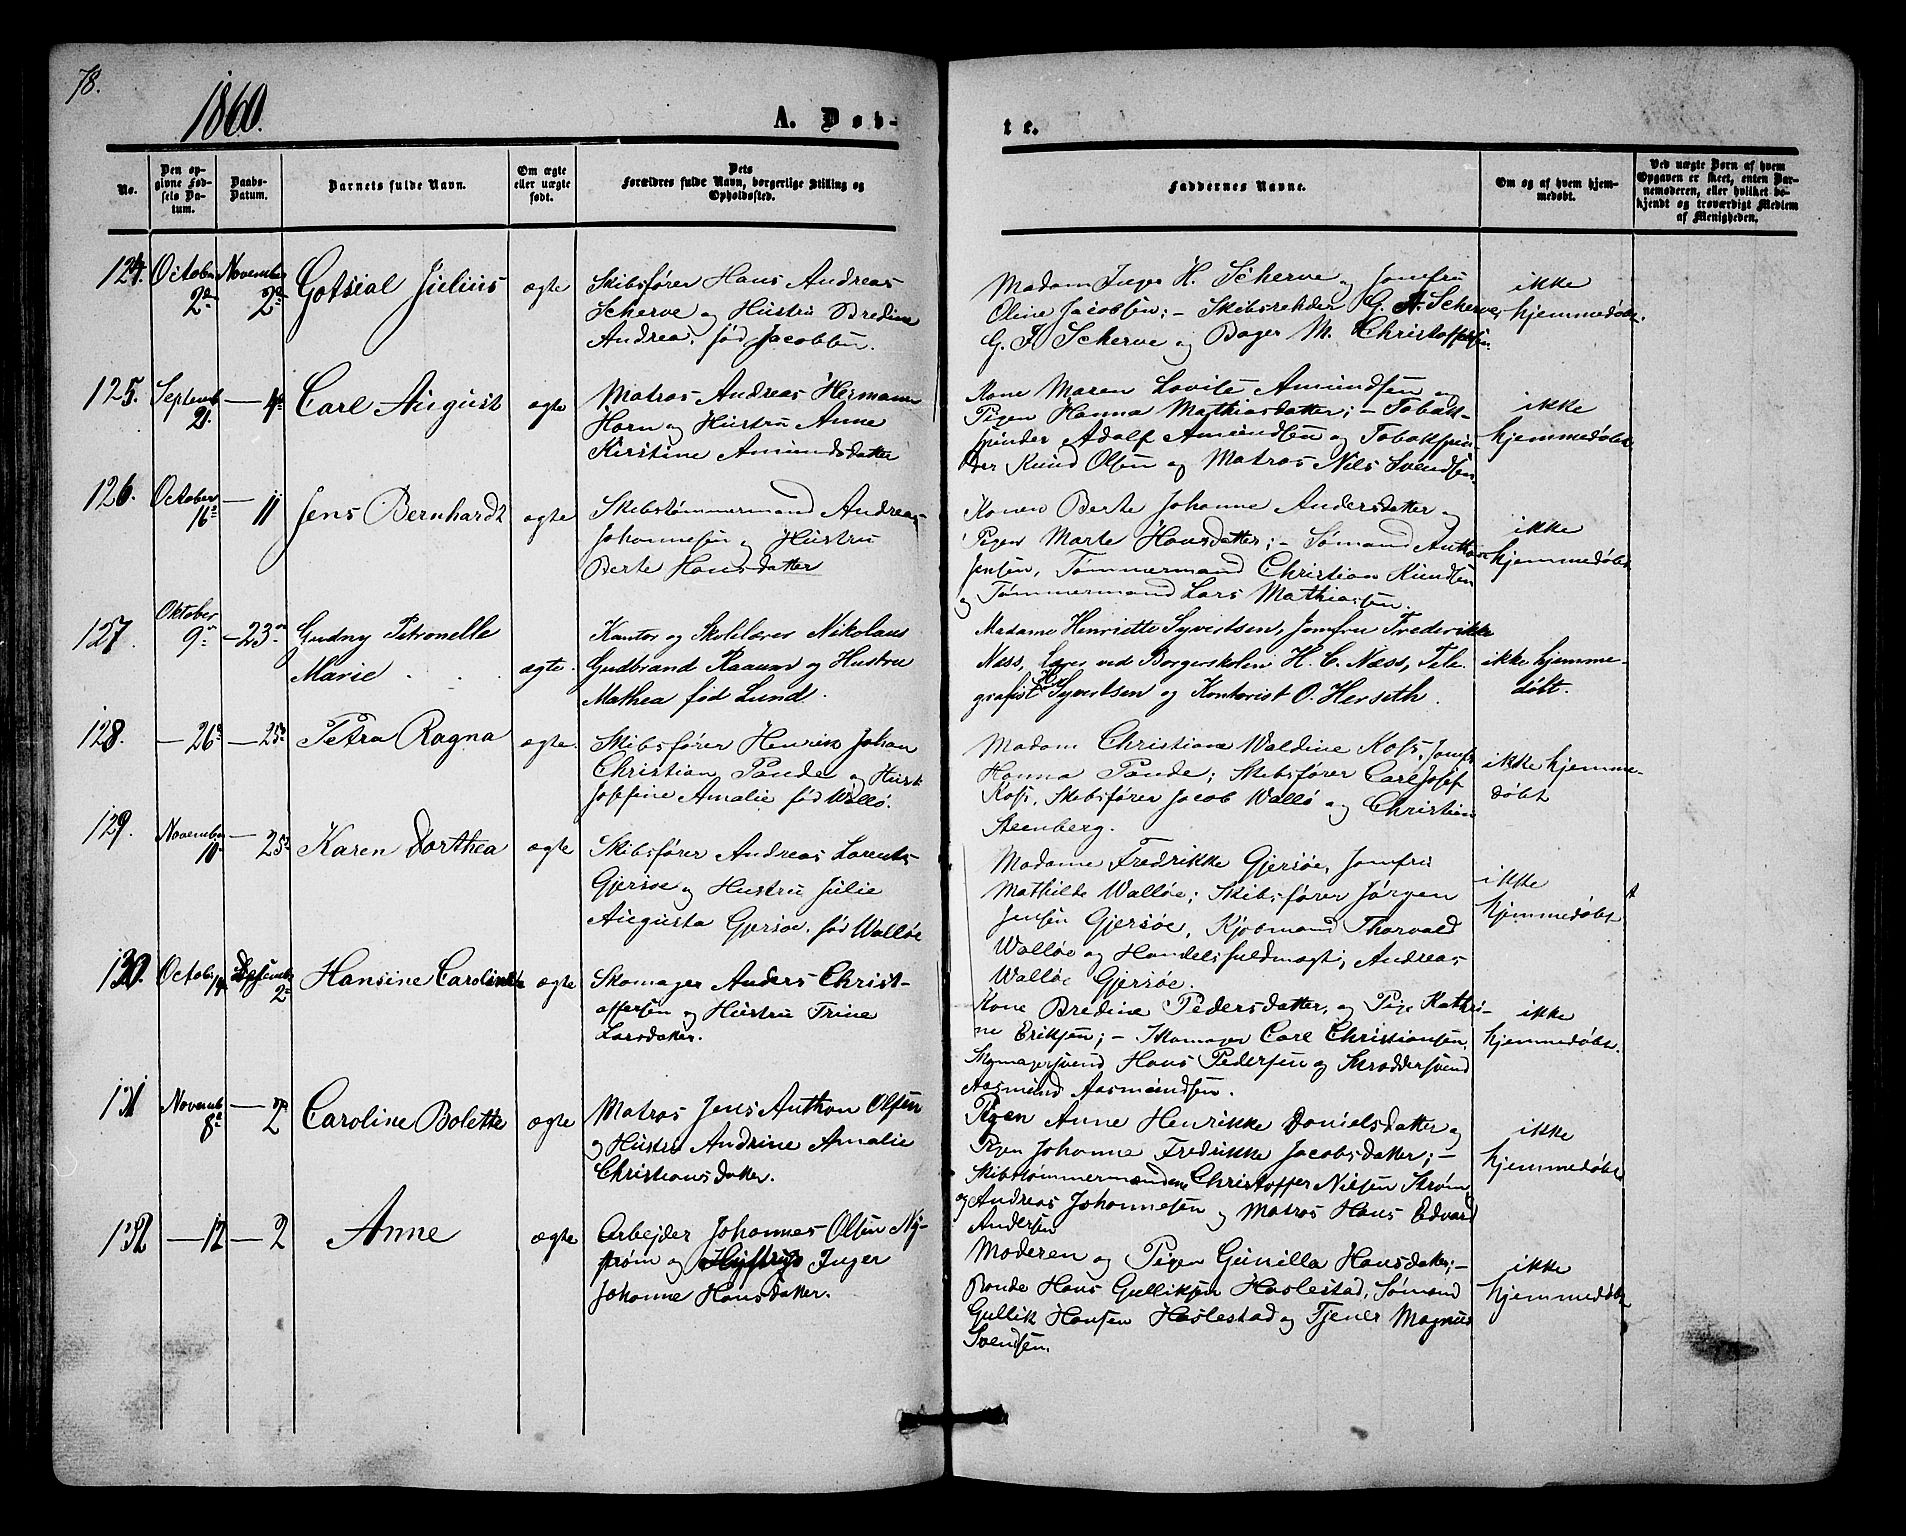 78.
1860.
A. Døb-
te.
No.
Den op-
givne Fød-
sels Da-
tum.
Daabs-
Datum.
Barnets fulde Navn.
Om ægte
eller uægte
født.
Dets
Forældres fulde Navn, borgerlige Stilling og
Opholdssted.
Faddernes Navne.
Om og af hvem hjem-
medøbt.
Ved uægte Børn af hvem
Opgaven er skeet, enten Bar-
nemoderen, eller hvilket be-
kjendt og troværdigt Medlem
af Menigheden.
124. October 2de November 2de Julius ægte
Skibsfører Hans Andreas
Scherve og Hustru Bredine
Andrea, født Jacobsen.
Madam Inger H. Scherve og Jomfru
Oline Jacobsen; - Skibsrheder G. A. Scherve,
G. F. Scherve og Bager M. Christoffersen.
ikke
hjemmedøbt.
125. Septemb. 21 — 4de Carl August ægte
Matros Andreas Hermann
Horn og Hustru Anne
Kirstine Amundsdatter
Kone Maren Lovise Amundsen og
Pigen Hanna Mathiasdatter; - Tobak-
spinder Adolf Amundsen og Tobakspin-
der Knud Olsen og Matros Nils Svendsen.
ikke
hjemmedøbt
126. October 16de — 11 Jens Bernhardt ægte
Skibstømmermand Andreas
Johannesen og Hustru
Berte Hansdatter
Konen Berte Johanne Andersdatter og
Pigen Marte Hansdatter; - Sømand Anthon
Jensen, Tømmermand Christian Knudsen
og Tømmermand Lars Mathiasen.
ikke
hjemmedøbt
127. Oktober 9de — 23de Gudny Petronelle
Marie ægte.
Kantor og Skolelærer Nikolaus
Gudbrand Raaum og Hustru
Mathea fød Lund.
Madame Henriette Syvertsen, Jomfru Frederikke
Næss, Lærer ved Borgerskolen H. C. Næss, Tele-
grafist Syvertsen og Kontorist O. Herseth.
ikke hjemme-
døbt.
128. — 26de — 25de Petra Ragna ægte.
Skibsfører Henrik Johan
Christian Pande og Hustr.
Josefine Amalie fød Wallø.
Madam Christiane Waldine Koss, Jomfr.
Hanna Pande; Skibsfører Carl Josef
Koss, Skibsfører Jacob Wallø og Christian
Steenberg.
ikke hjemme-
døbt
129. November 10 — 25de Karen Dorthea ægte
Skibsfører Andreas Lorents
Gjersøe og Hustru Julie
Augusta Gjersøe, fød Walløe
Madame Fredrikke Gjersøe, Jomfru
Mathilde Walløe; Skibsfører Jørgen
Jensen Gjersøe, Kjøbmand Thorvald
Walløe og Handelsfuldmægtig Andreas
Walløe Gjersøe.
ikke
hjemmedøbt
130. Octob. 14 Desember 2de Hansine ægte
Skomager Anders Christ-
offersen og Hustru Trine
Larsdatter.
Kone Bredine Pedersdatter, og Pige Kathri-
ne Eriksen; - Skomager Carl Christiansen,
Skomagersvend Hans Pedersen og Skræddersvend
Aasmund Aasmundsen.
ikke
hjemmedøbt.
131 Novemb. 8de — 2den Caroline Bolette ægte
Matros Jens Anthon Olsen
og Hustru Andrine Amalie
Christiansdatter.
Pigen Anne Henrikke Danielsdatter og
Pigen Johanne Fredrikke Jacobsdatter; -
Skibstømmermændene Christoffer Nilsen Strøm,
og Andreas Johannesen og Matros Hans Edvard
Andersen
ikke
hjemmedøbt
132 — 12 — 2 Anne ægte
Arbejder Johannes Olsen Ny-
strøm og Hustru Inger
Johanne Hansdatter.
Moderen og Pigen Gunilla Hansdatter; -
Bonde Hans Gulliksen Haslestad, Sømand
Gullik Hansen Haslestad og Tjener Magnus
Svendsen.
ikke
hjemmedøbt